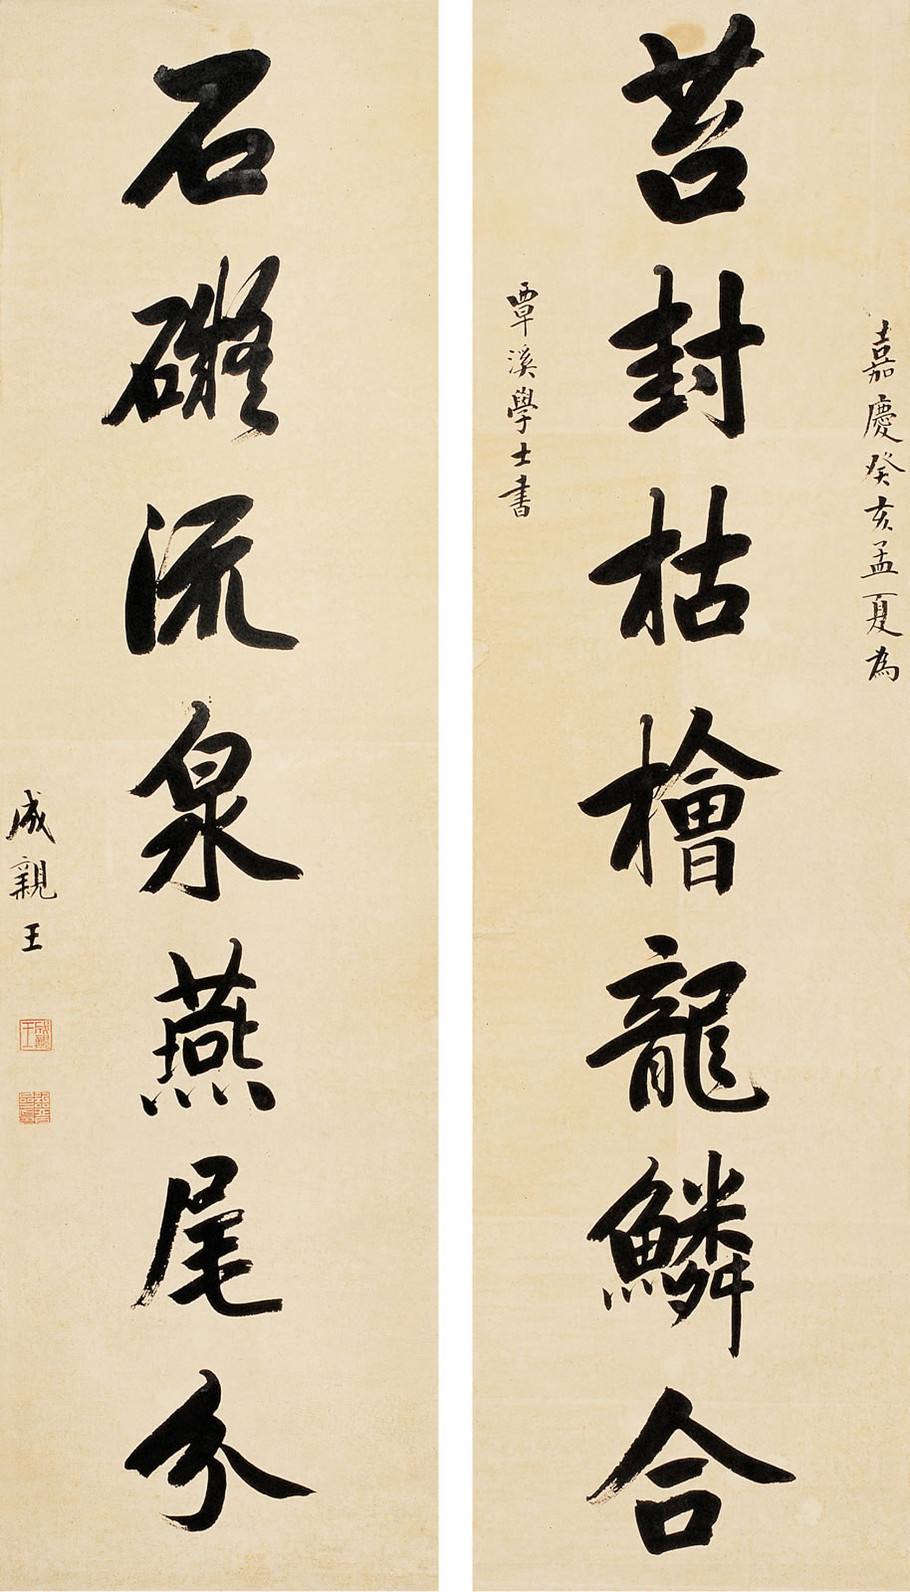 嘉慶癸亥孟夏為
苔封枯檜龍鱗合
覃溪學士書
石礙流泉燕尾分
成親王
成親王